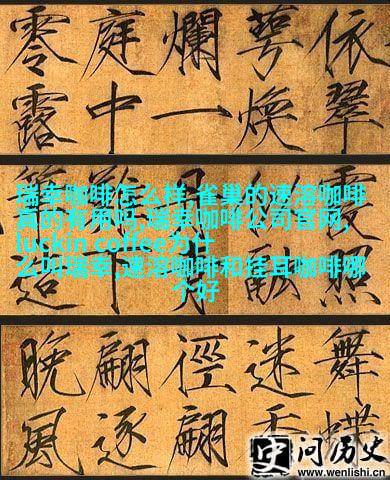 依翠
萼煥
爛一
庭中
零露
瑞幸咖啡怎么样,雀巢的速溶咖啡
真的有用吗,瑞幸咖啡公司官网,
luckin coffee为什
么叫瑞幸,速溶咖啡和挂耳咖啡哪
个好
照
融
造
舞蝶
迷香
徑翩
翩逐
晚風
问历史
www.wenlishi.cn